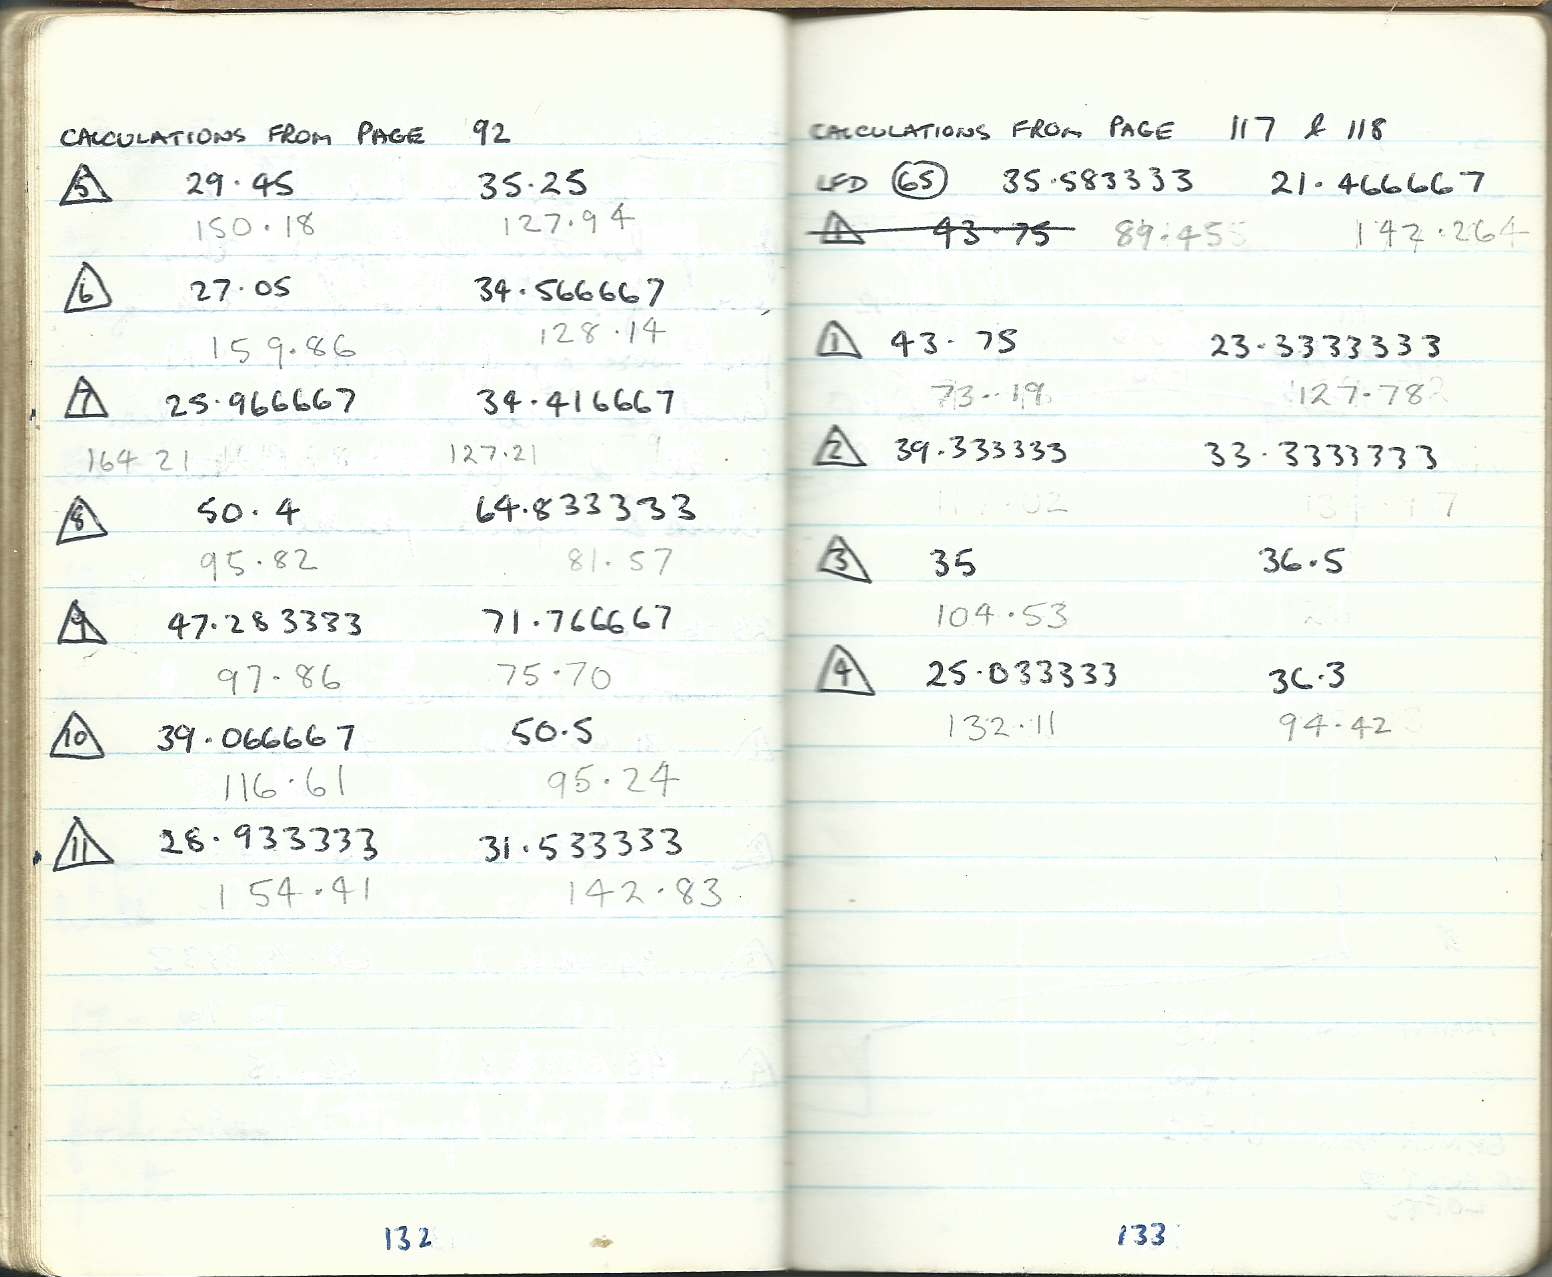 CALCULATIONS FROM PAGE 92
5 29.45 35.25
150.18 127.94
6 27.05 34.566667
159.86 128.14
7 25.966667 34.416667
164 21 127.21
8 50.4 64.833333
95.82 81.57
9 47.283333 71.766667
97.86 75.70
10 39.066667 50.5
116.61 95.24
11 28.933333 31.533333
154.41 142.83
132
CALCULATIONS FROM PAGE 117 & 118
LFD 65 35.583333 21.466667
1 43.75 89.455 142.264
1 43.75 23.3333333
73.19 127.78
2 39.333333 33.3333333
3 35 36.5
104.53
4 25.033333 36.3
132.11 94.42
133